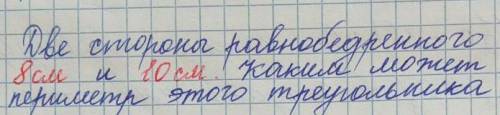 Две стороны равнобедренного
8см и 10см. Каким может
периметр этого треугольника